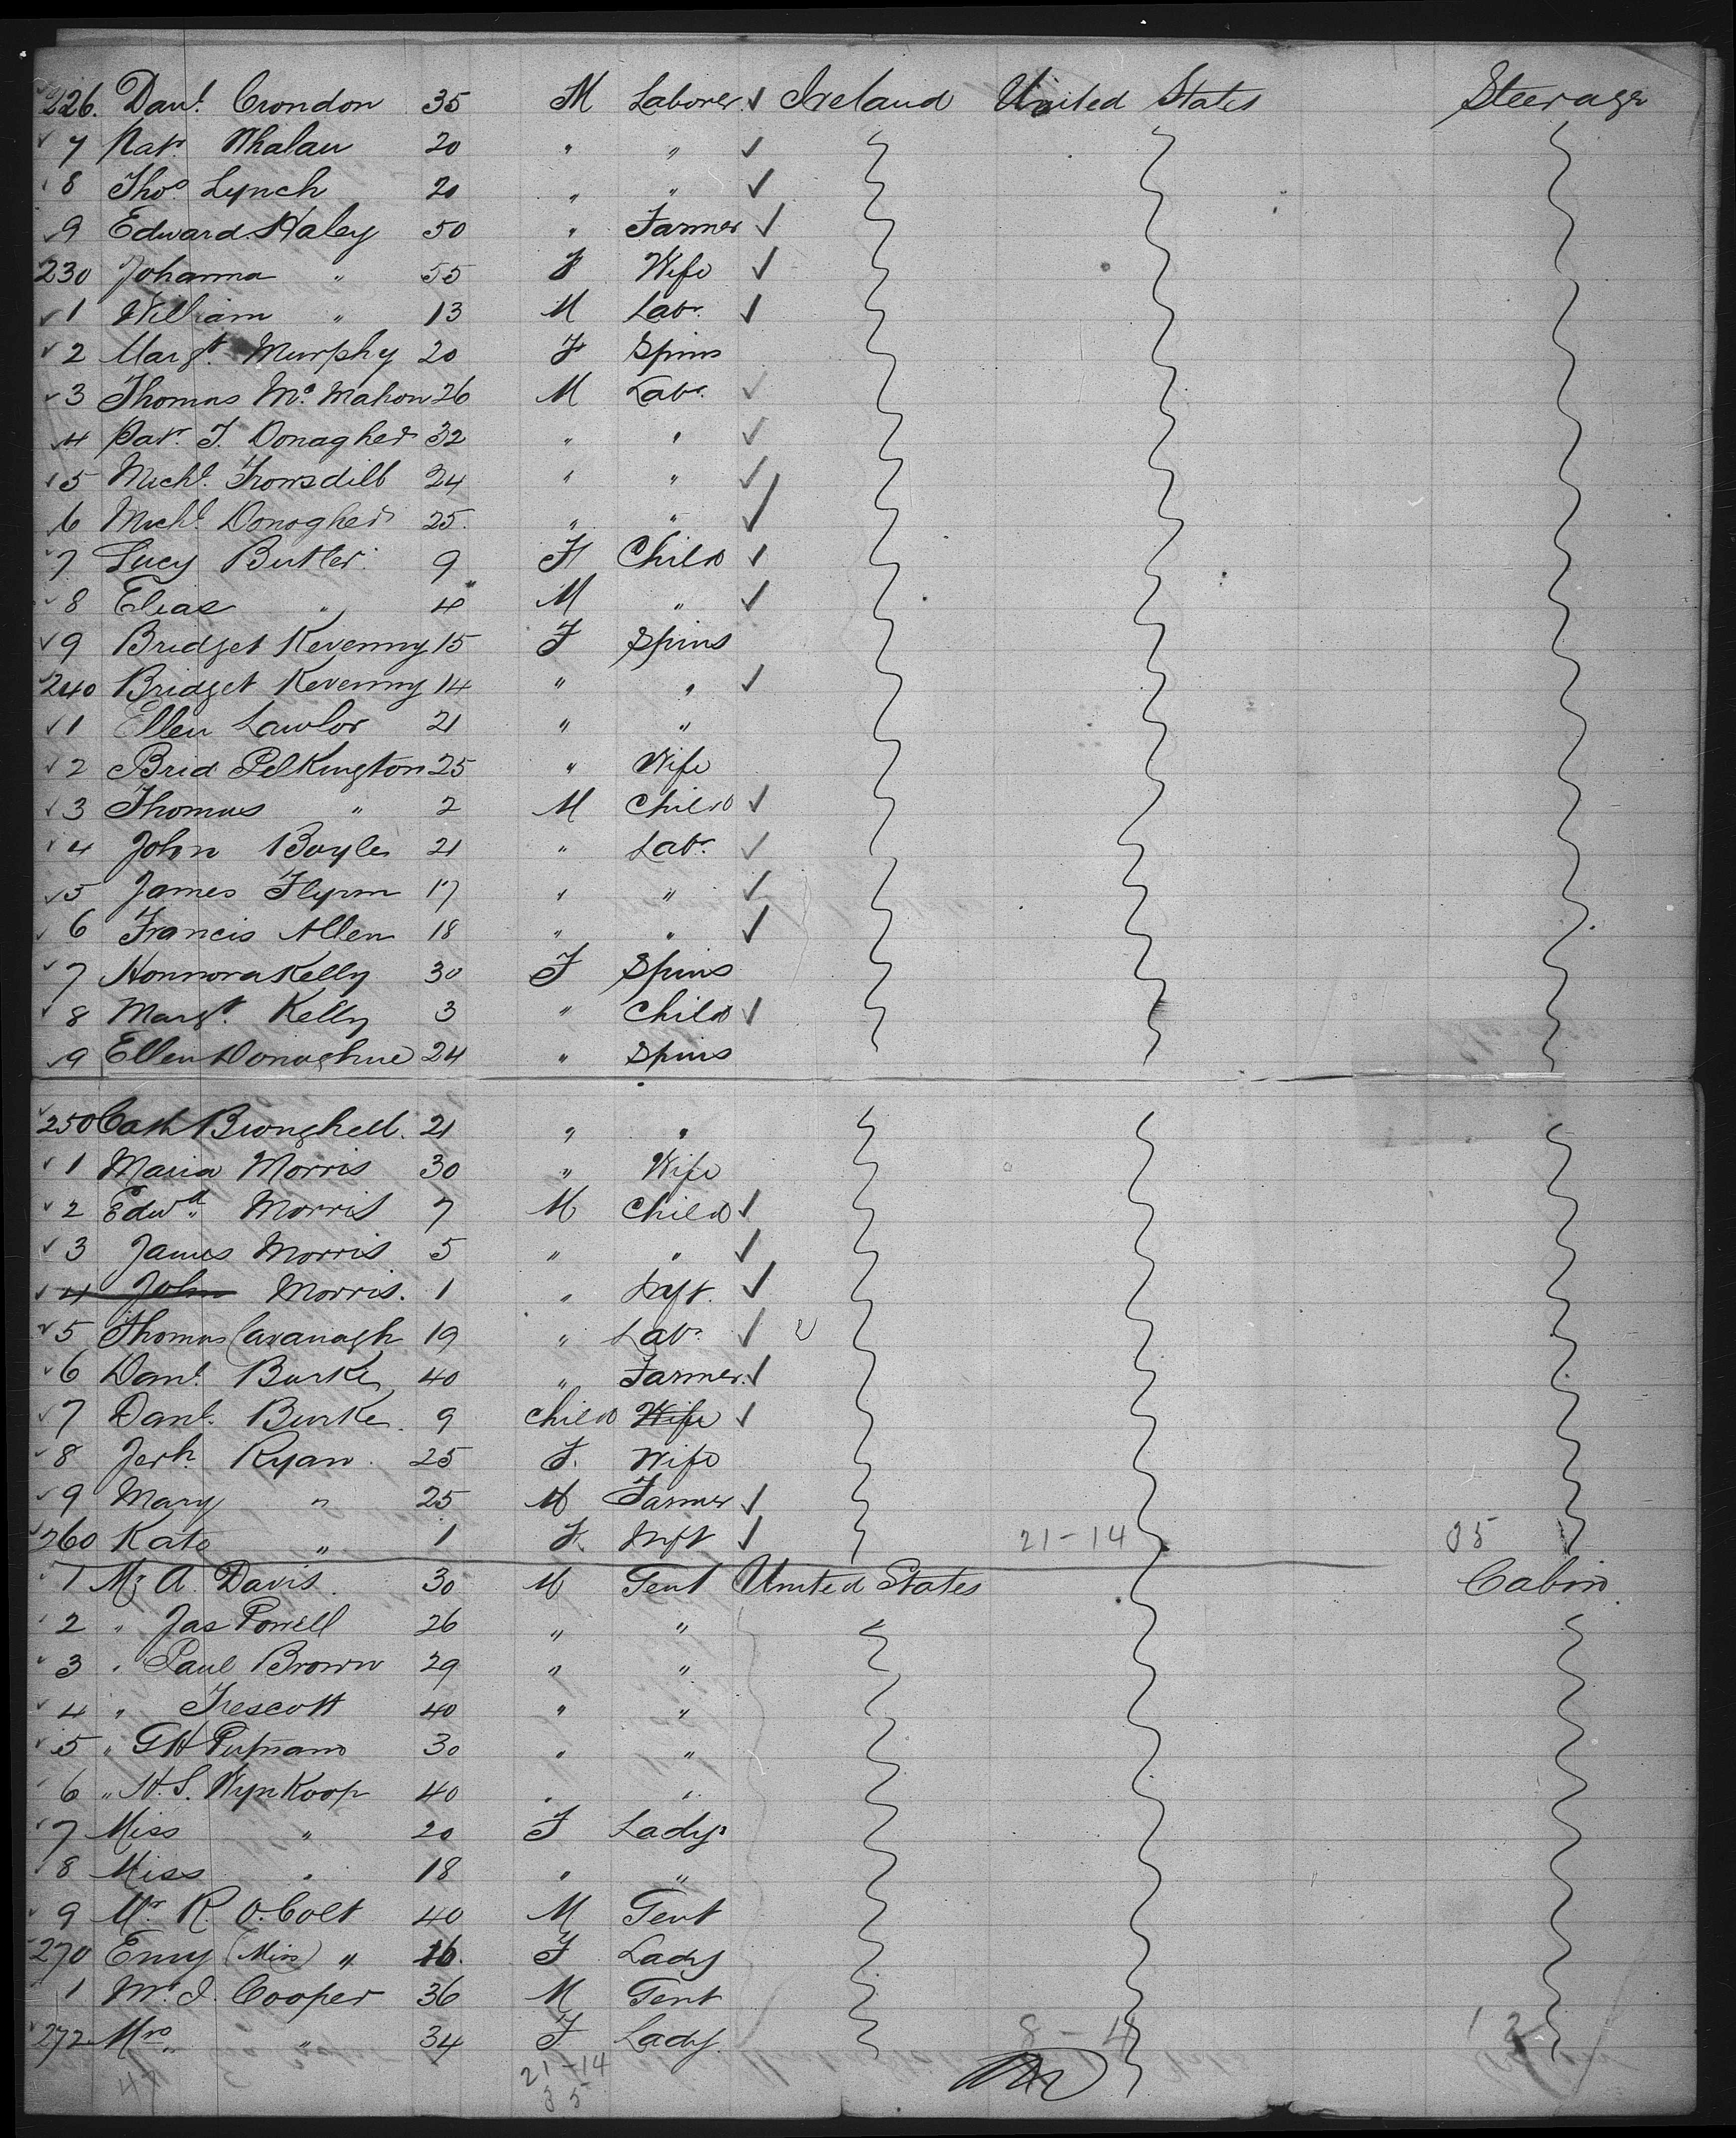 226. Danl. Crondon 35 M Laborer ✓ Ireland United States Steerage
7 Patr. Whalan 20 " " ✓
8 Thos Lynch 20 " " ✓
9 Edward Haley 50 " Farmer ✓
230 Johanna " 55 F Wife ✓
1 William " 13 M Labr. ✓
2 Margt. Murphy 20 F Spins
3 Thomas Mc. Mahon 26 M Labr. ✓
4 Patr. J. Donagher 32 " " ✓
5 Michl. 24 " " ✓
6 Michl. Donogher 25. " " ✓
7 Lucy Butler 9 F Child ✓
8 Elias " 4 M " ✓
9 Bridget Kevenny 15 F Spins
240 Bridget Kevenny 14 " " ✓
1 Ellen Lawlor 21 " "
2 Brid Pelkington 25 " Wife
3 Thomas " 2 M Child ✓
4 John Boyle 21 " Labr. ✓
5 James Flynn 17 " " ✓
6 Francis Allen 18 " " ✓
7 Honnora Kelly 30 F Spins
8 Margt. Kelly 3 " Child ✓
9 Ellen Donoghue 24 " Spins
250 Cath 21 " "
1 Maria Morris 30 " Wife
2 Edwd. Morris 7 M Child ✓
3 James Morris 5 " " ✓
4 John Morris. 1 " Inft. ✓
5 Thomas Cavanagh 19 " Labr. ✓
6 Danl. Burke 40 " Farmer. ✓
7 Danl. Burke. 9 Child Wife ✓
8 Jerh. Ryan. 25 F. Wife
9 Mary " 25 M Farmer ✓
260 Kate " 1 F. Inft ✓ 21-14 35
1 Mr A. Davis. 30 M Gent United States Cabin
2 " Jas Powell 26 " "
3 " Paul Brown 29 " "
4 " Trescott 40 " "
5 " GH Putnam 30 " "
6 " H.S. Wynkoop 40 " "
7 Miss " 20 F Lady
8 Miss " 18 " "
9 Mr. R. O. Colt 40 M Gent
270 Emy (Miss) " 16. F Lady
1 Mr. J. Cooper 36 M Gent
272 Mrs " 34 F Lady. 8-4 12
21-14
35